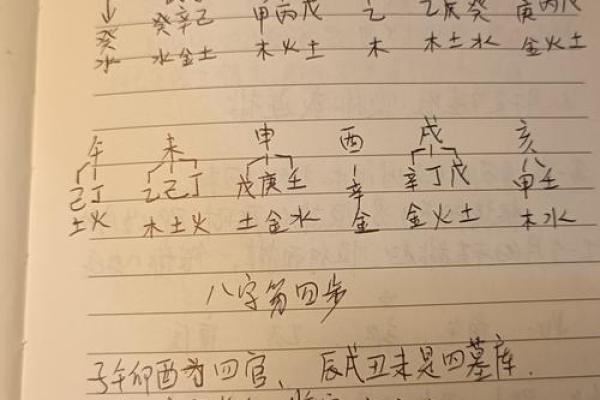 癸辛己 甲丙戊 乙 乙戊癸 庚丙戊
癸
水 水金土 木火土 木 木土水 金火土
午 未 申 酉 戌 亥
己丁 乙己丁 戊庚壬 辛 辛丁戊 甲壬
土火 木土火 土金水 金 金火土 木水
八字第四步
子午卯酉为四官、辰戌丑未是四墓库.